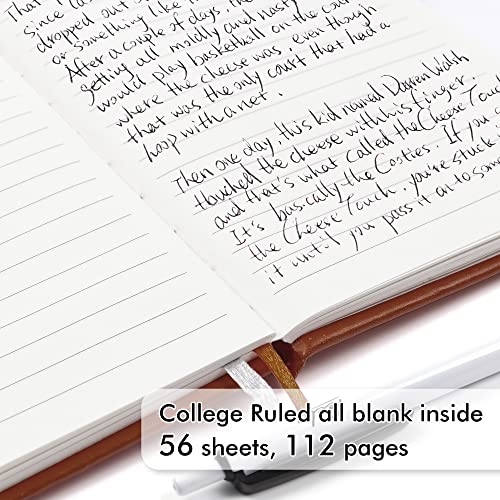 That
since
dropped out
or something like
After a couple of days, the
getting all moldy and nasty
would play basketball on the cou
where the cheese was, even though
that was the only court that had a
hoop with a net.
Then one day, this kid named Darren Walsh
touched the cheese with his finger,
and that's what called the Cheese Touc
It's basically the Cooties. If you g
the Cheese Touch, you're stuck
it until you pass it on to some
College Ruled all blank inside
56 sheets, 112 pages